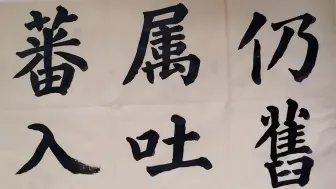 仍舊
属吐
蕃入